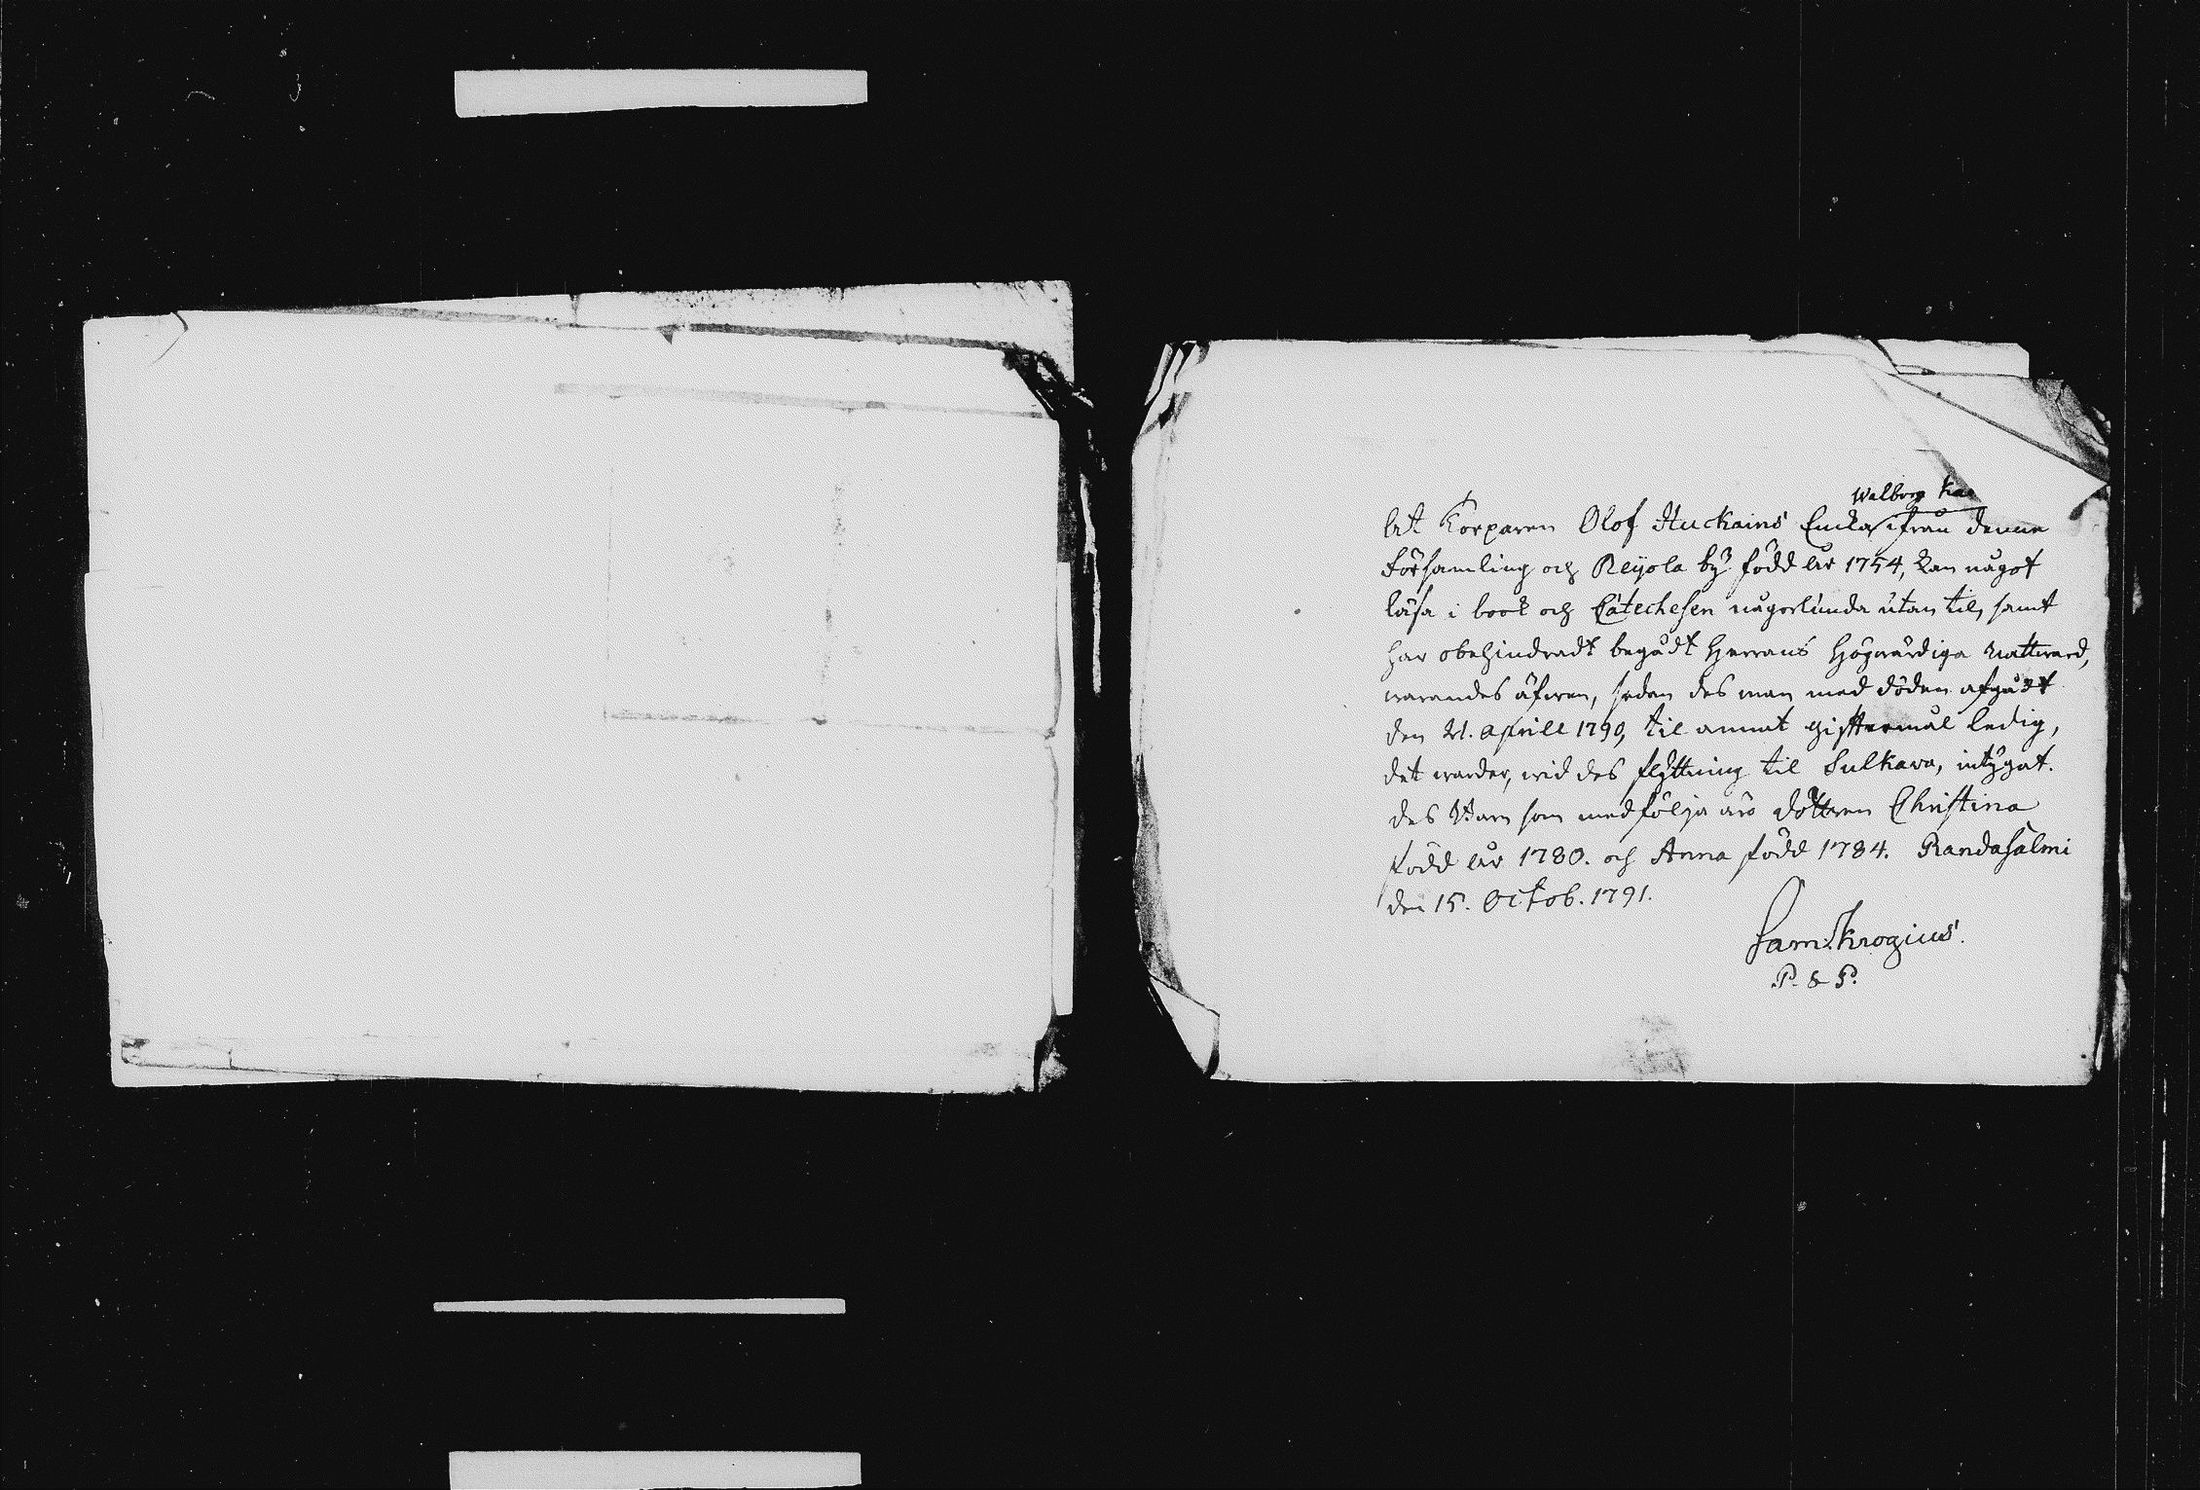 Walborg
At Torparen Olof Huckains Enka ifrån denne
Församling och Reijola bÿ född år 1754, kan något
läsa i book och Catechesen någorlunda utan til, samt
har obehindradt begådt Herrans Högwärdiga Nattward,
warandes äfwen, sedan des man med döden afgådt
den 21. Aprill 1790, til annat gifftermål ledig,
det warder, wid des flÿttning til Sulkawa, intÿgat.
des Barn som medfölja äro dottren Christina
född år 1780. och Anna född 1784. Randasalmi
den 15. Octob. 1791.
Sam: Krogius.
P. & P.